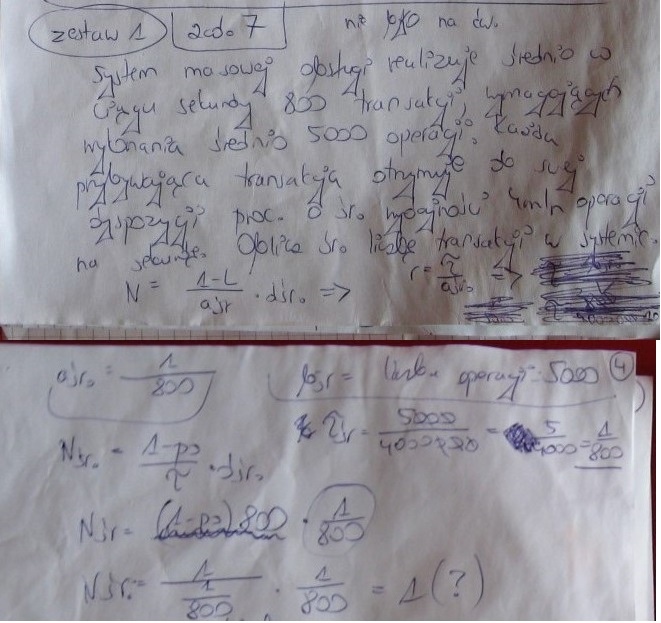 zestaw 1 zad. 7 niż jako na ćw.
System masowej obsługi realizuje średnio w
ciągu sekundy 800 transakcji, wymagających
wykonania średnio 5000 operacji. Każda
przybywająca transakcja otrzymuje do swej
dyspozycji proc. o śr. wydajności 4mln operacji
na sekundę. Oblicz śr. liczbę transakcji w systemie.
N = 1-L / aśr · dśr. => r = τ / aśr. =>
aśr. = 1 / 800 pśr = liczba operacji = 5000 4
Nśr. = 1-po / τ · dśr. τśr = 5000 / 4000000 = 5 / 4000 = 1 / 800
Nśr = (1-po) 800 · 1 / 800
Nśr. = 1 / 1 / 800 · 1 / 800 = 1 (?)